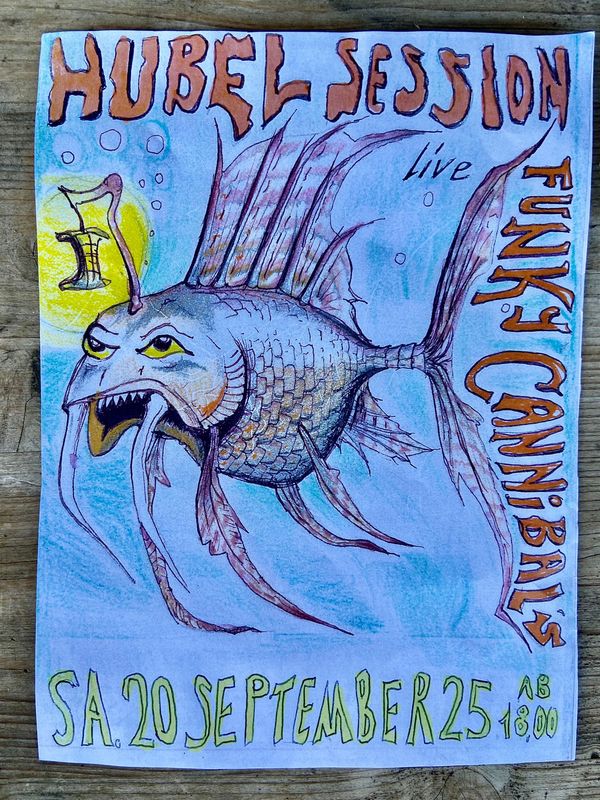 HUBEL SESSION
live
FUNKY CANNiBAL's
SA. 20 SEPTEMBER 25 AB
18,00